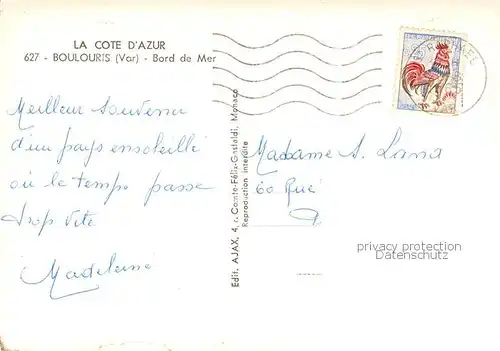 LA COTE D'AZUR
627 - BOULOURIS (Var) - Bord de Mer
Meilleur souvenir
d'un pays ensoleillé
où le temps passe
trop vite
Madeleine
Edit. AJAX, 4, r. Comte-Félix-Gastaldi, Monaco
Reproduction interdite
Madame S. Land
60 Rue
privacy protection
Datenschutz